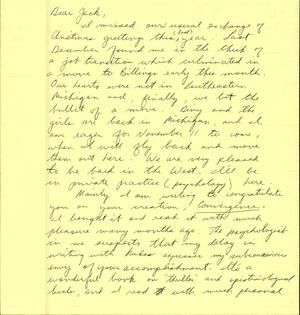 Dear Jack,
I missed our usual exchange of
Christmas greetings this (last) year. Last
December found me in the thick of
a job transition which culminated in
a move to Billings early this month.
Our hearts were not in Southeastern
Michigan and finally, we bit the
bullet of a move. Ginny and the
girls are back in Michigan, and I
am eager for November 11 to come,
when I will fly back and move
them out here. We are very pleased
to be back in the West. I'll be
in private practice (psychology) here.
Mainly I am writing to congratulate
you on your creation, Convergence.
I bought it and read it with much
pleasure many months ago. The psychologist
in me suspects that my delay in
writing with kudos expresses my subconscious
envy of your accomplishment. It's a
wonderful book on thriller and epistemological
levels, and I read it with much personal